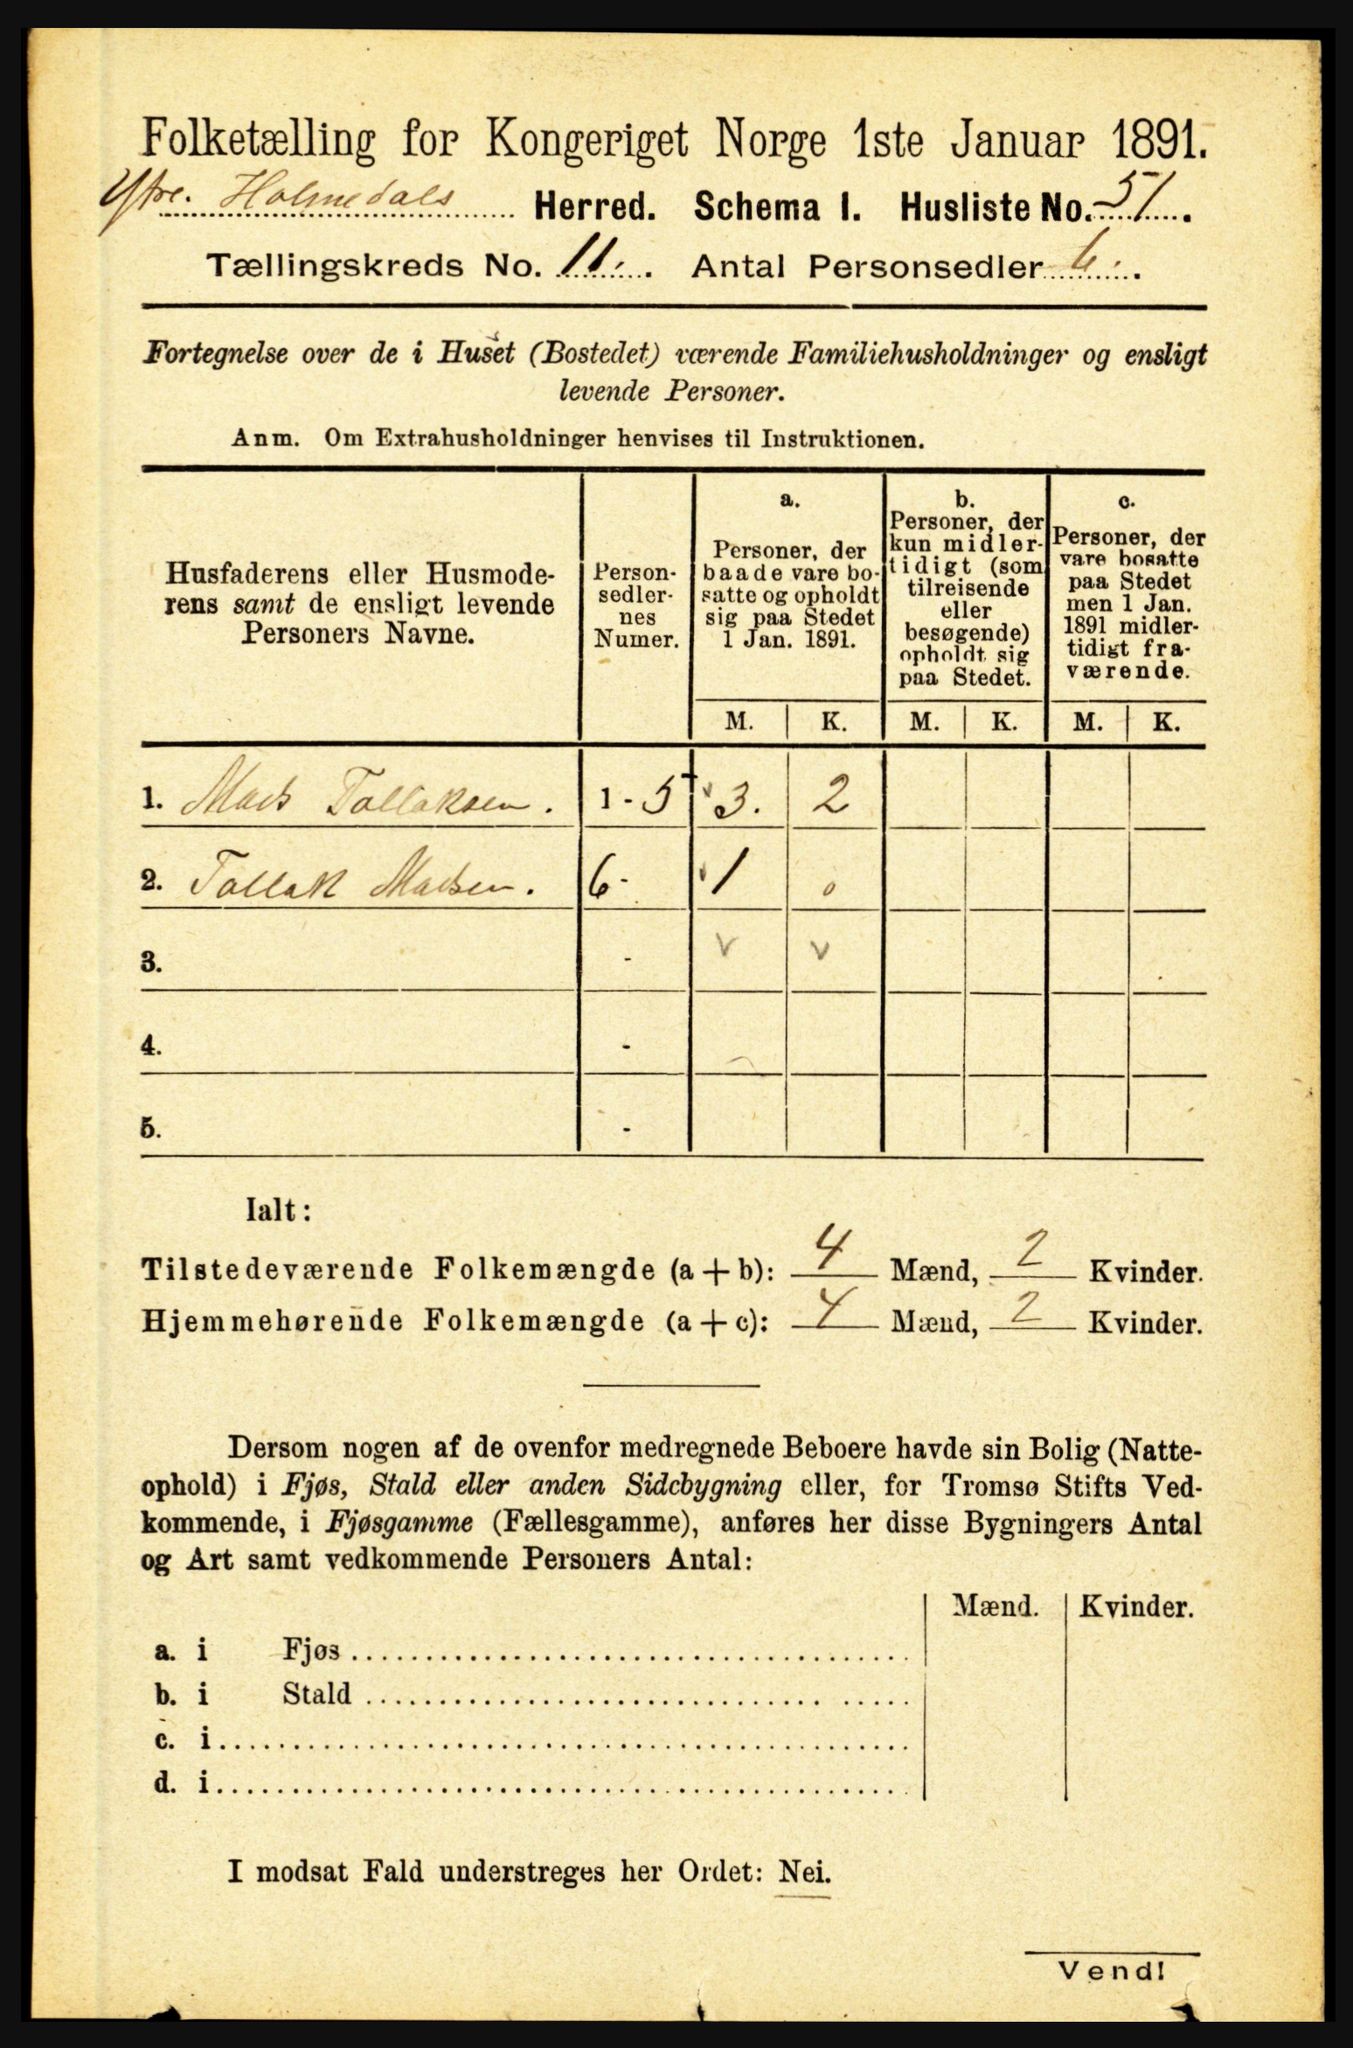 Folketælling for Kongeriget Norge 1ste Januar 1891.
Ytre. Holmedals Herred. Schema I. Husliste No. 51.
Tællingskreds No. 11. Antal Personsedler 6.
Fortegnelse over de i Huset (Bostedet) værende Familiehusholdninger og ensligt
levende Personer.
Anm. Om Extrahusholdninger henvises til Instruktionen.
Husfaderens eller Husmode-
rens samt de ensligt levende
Personers Navne.
Person-
sedler-
nes
Numer.
a.
Personer, der
baade vare bo-
satte og opholdt
sig paa Stedet
1 Jan. 1891.
b.
Personer, der
kun midler-
tidigt (som
tilreisende
eller
besøgende)
opholdt sig
paa Stedet.
c.
Personer, der
vare bosatte
paa Stedet
men 1 Jan.
1891 midler-
tidigt fra-
værende.
M. K. M. K. M. K.
1. Mads Tollaksen. 1 - 5 3. 2
2. Tollak Madsen. 6 - 1 0
3. - v v
4. -
5. -
Ialt:
Tilstedeværende Folkemængde (a + b): 4 Mænd, 2 Kvinder.
Hjemmehørende Folkemængde (a + c): 4 Mænd, 2 Kvinder.
Dersom nogen af de ovenfor medregnede Beboere havde sin Bolig (Natte-
ophold) i Fjøs, Stald eller anden Sidebygning eller, for Tromsø Stifts Ved-
kommende, i Fjøsgamme (Fællesgamme), anføres her disse Bygningers Antal
og Art samt vedkommende Personers Antal:
Mænd. Kvinder.
a. i Fjøs
b. i Stald
c. i
d. i
I modsat Fald understreges her Ordet: Nei.
Vend!